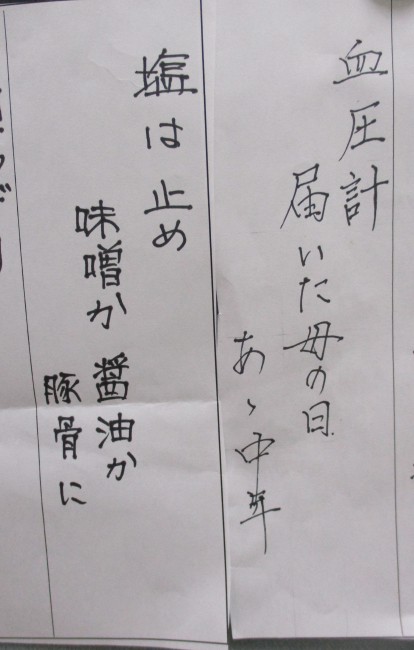 血圧計
届いた母の日
あゝ中年
塩は止め
味噌か 醤油か
豚骨に